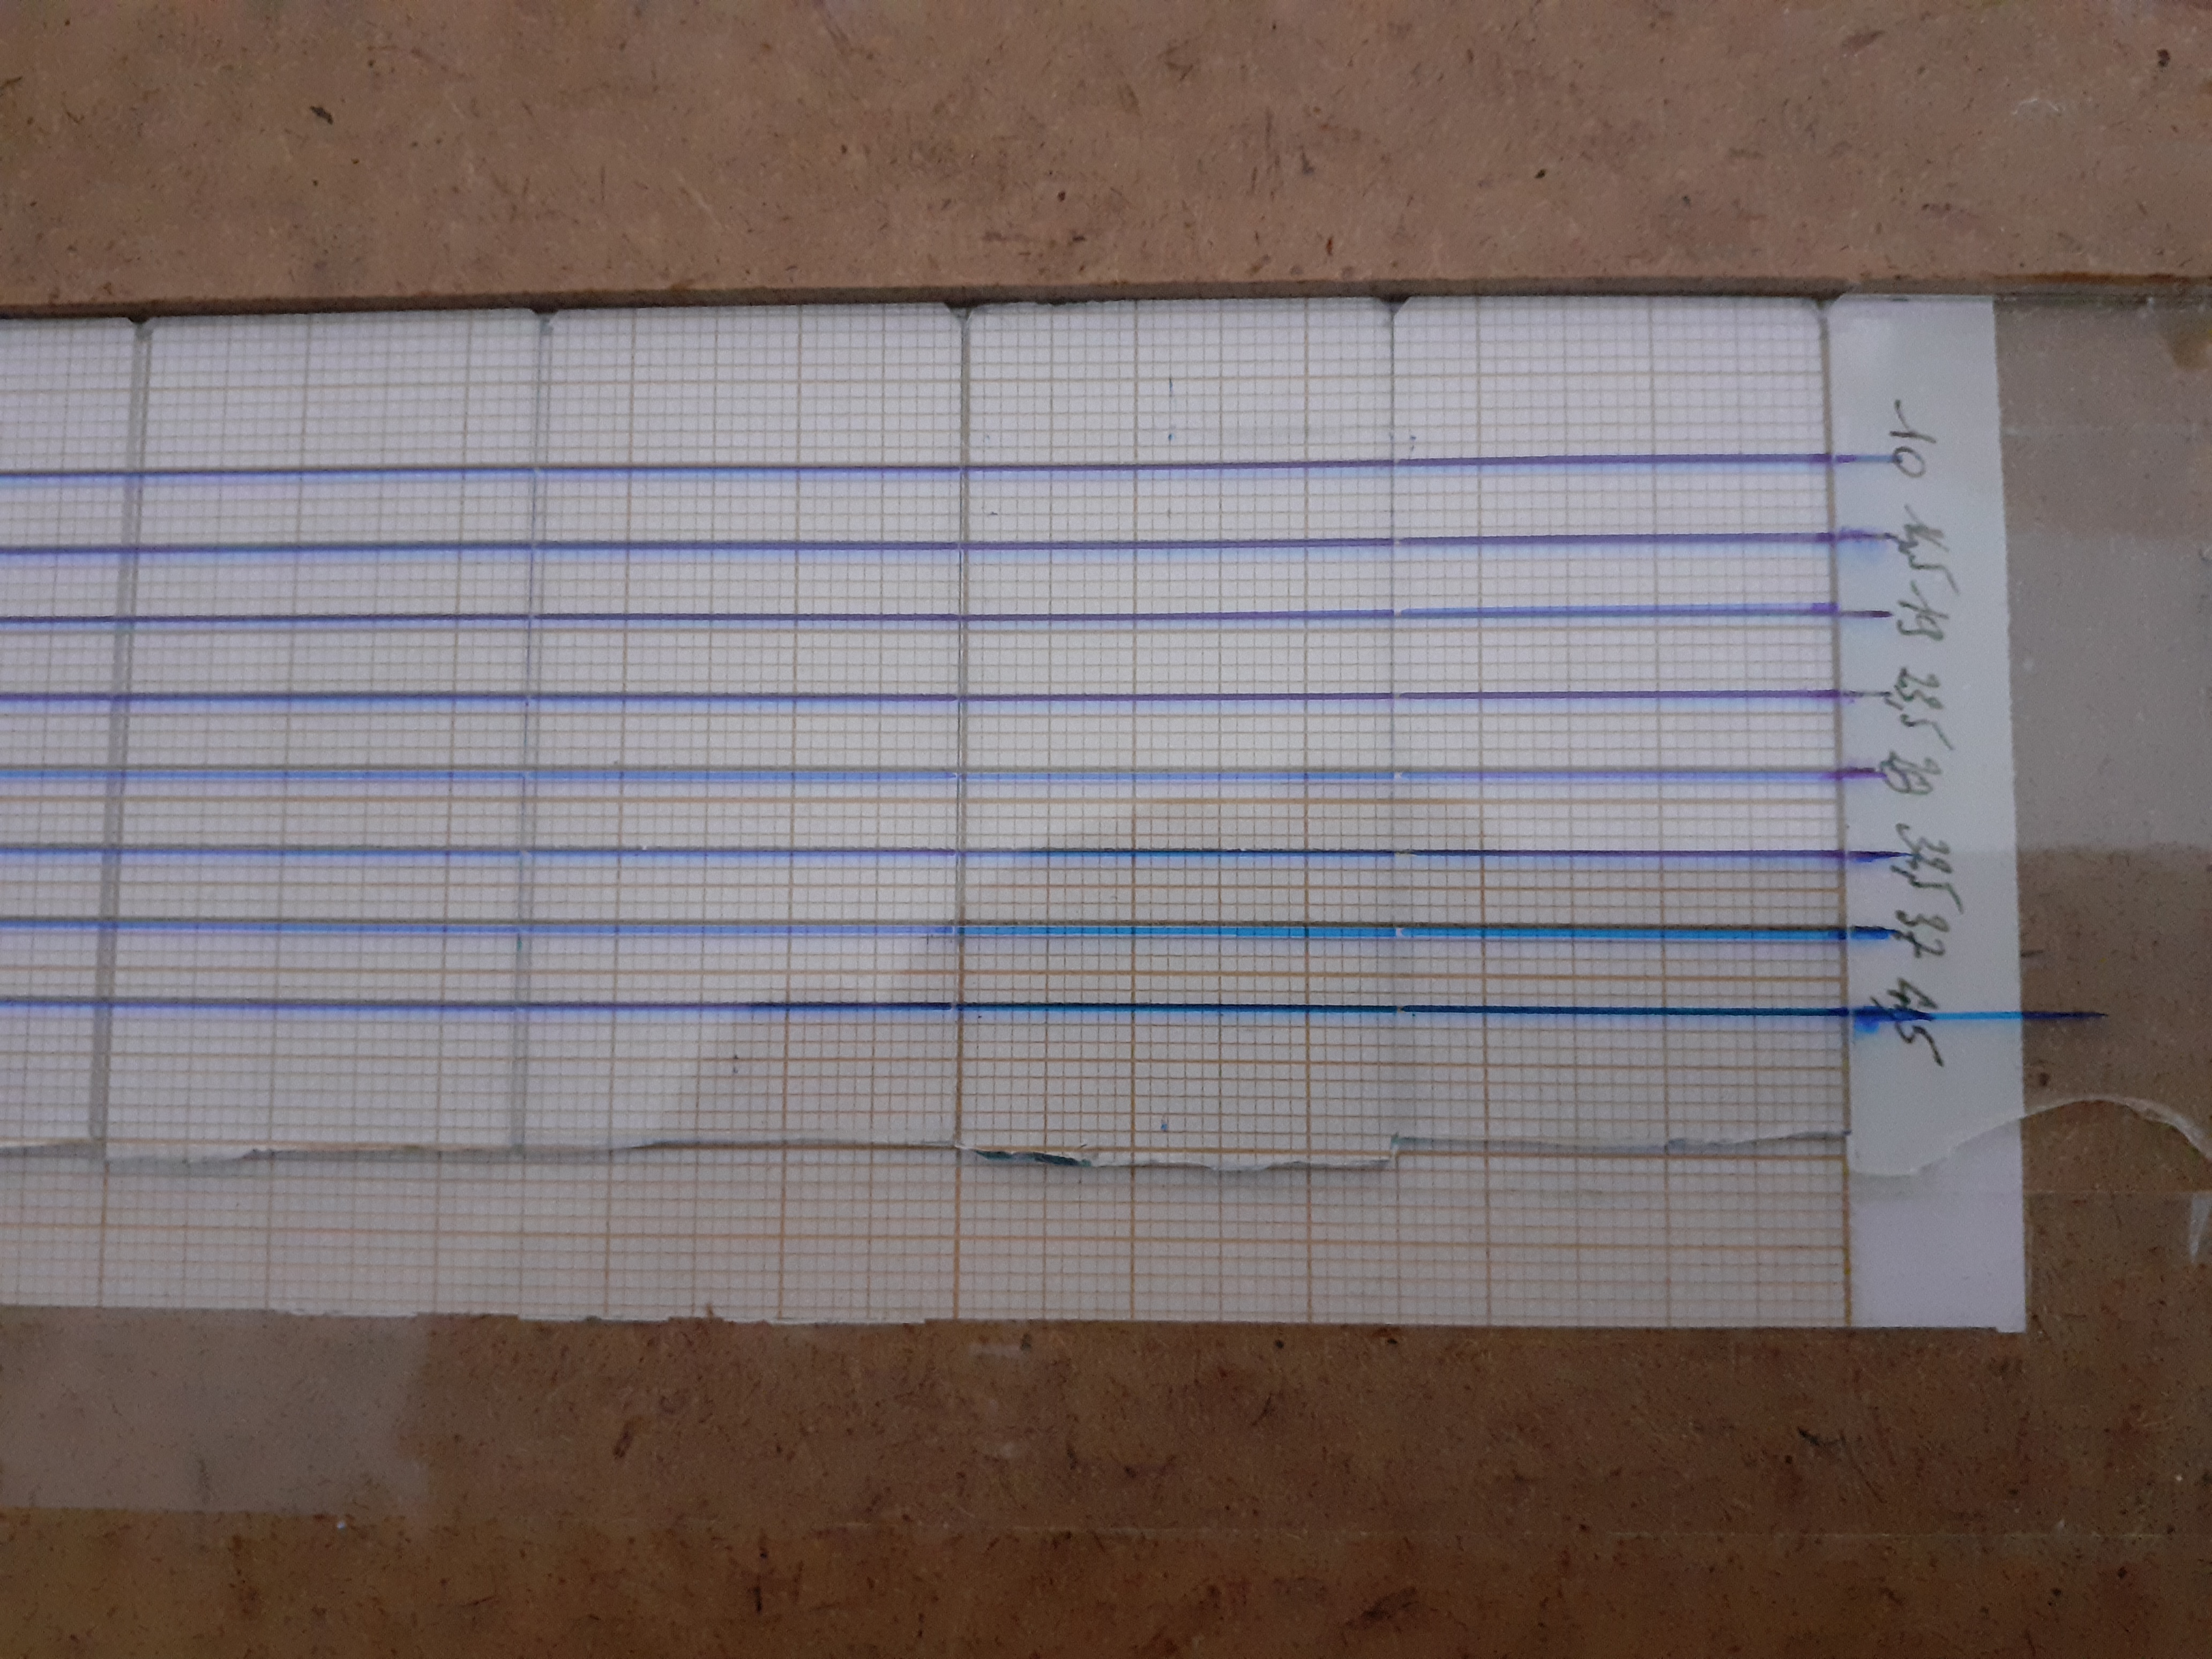 10 14,5 19 23,5 28 32,5 37 41,5